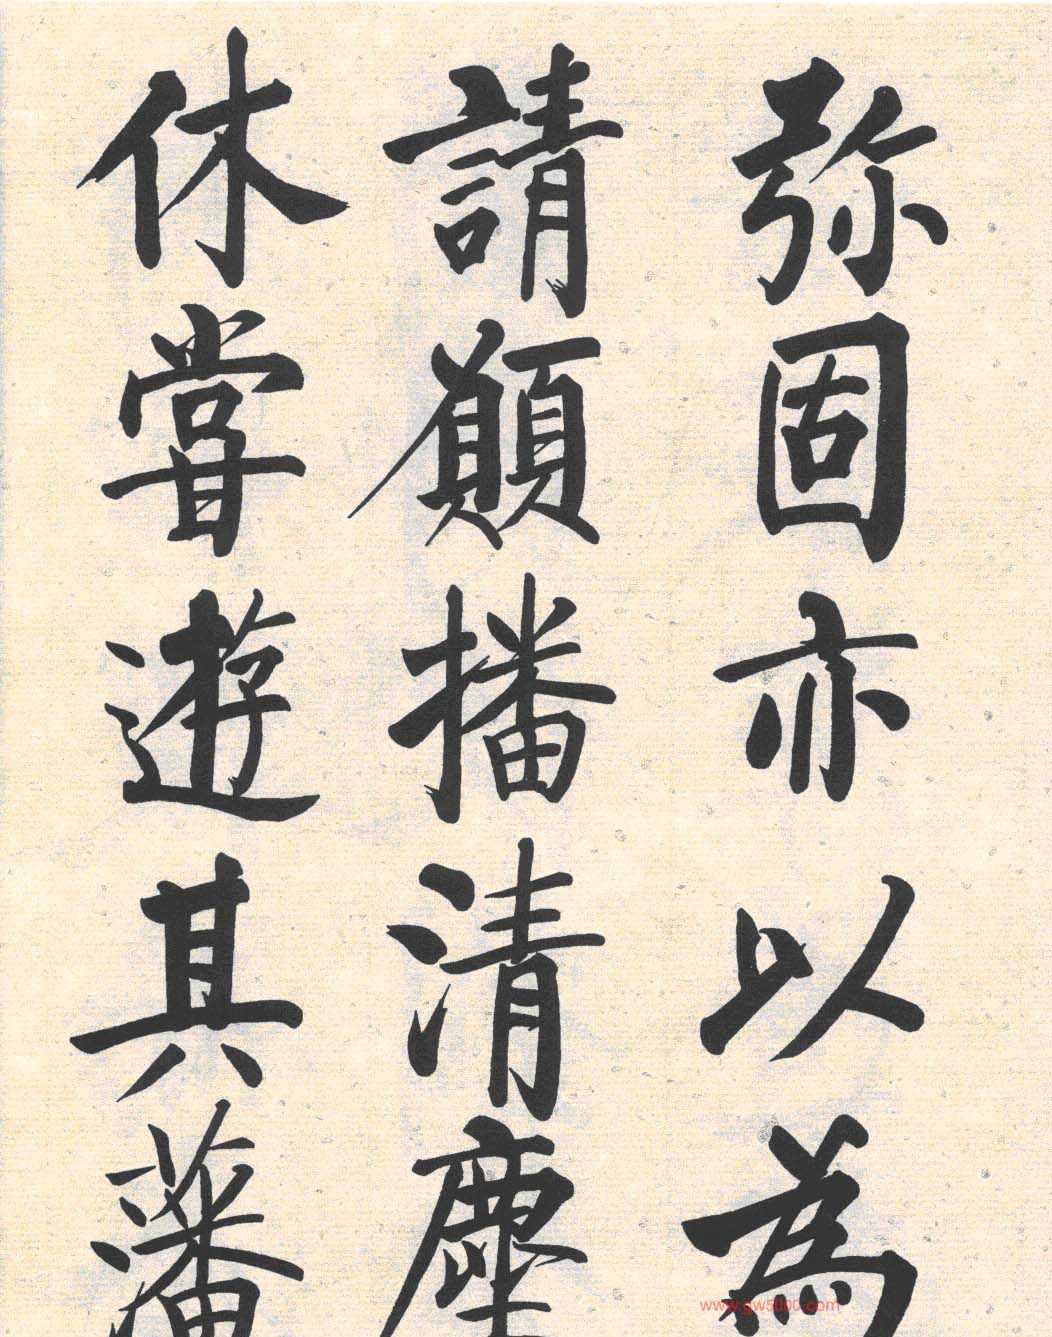 弥固亦以為
請願播清塵
休嘗遊其藩
www.gw5000.com